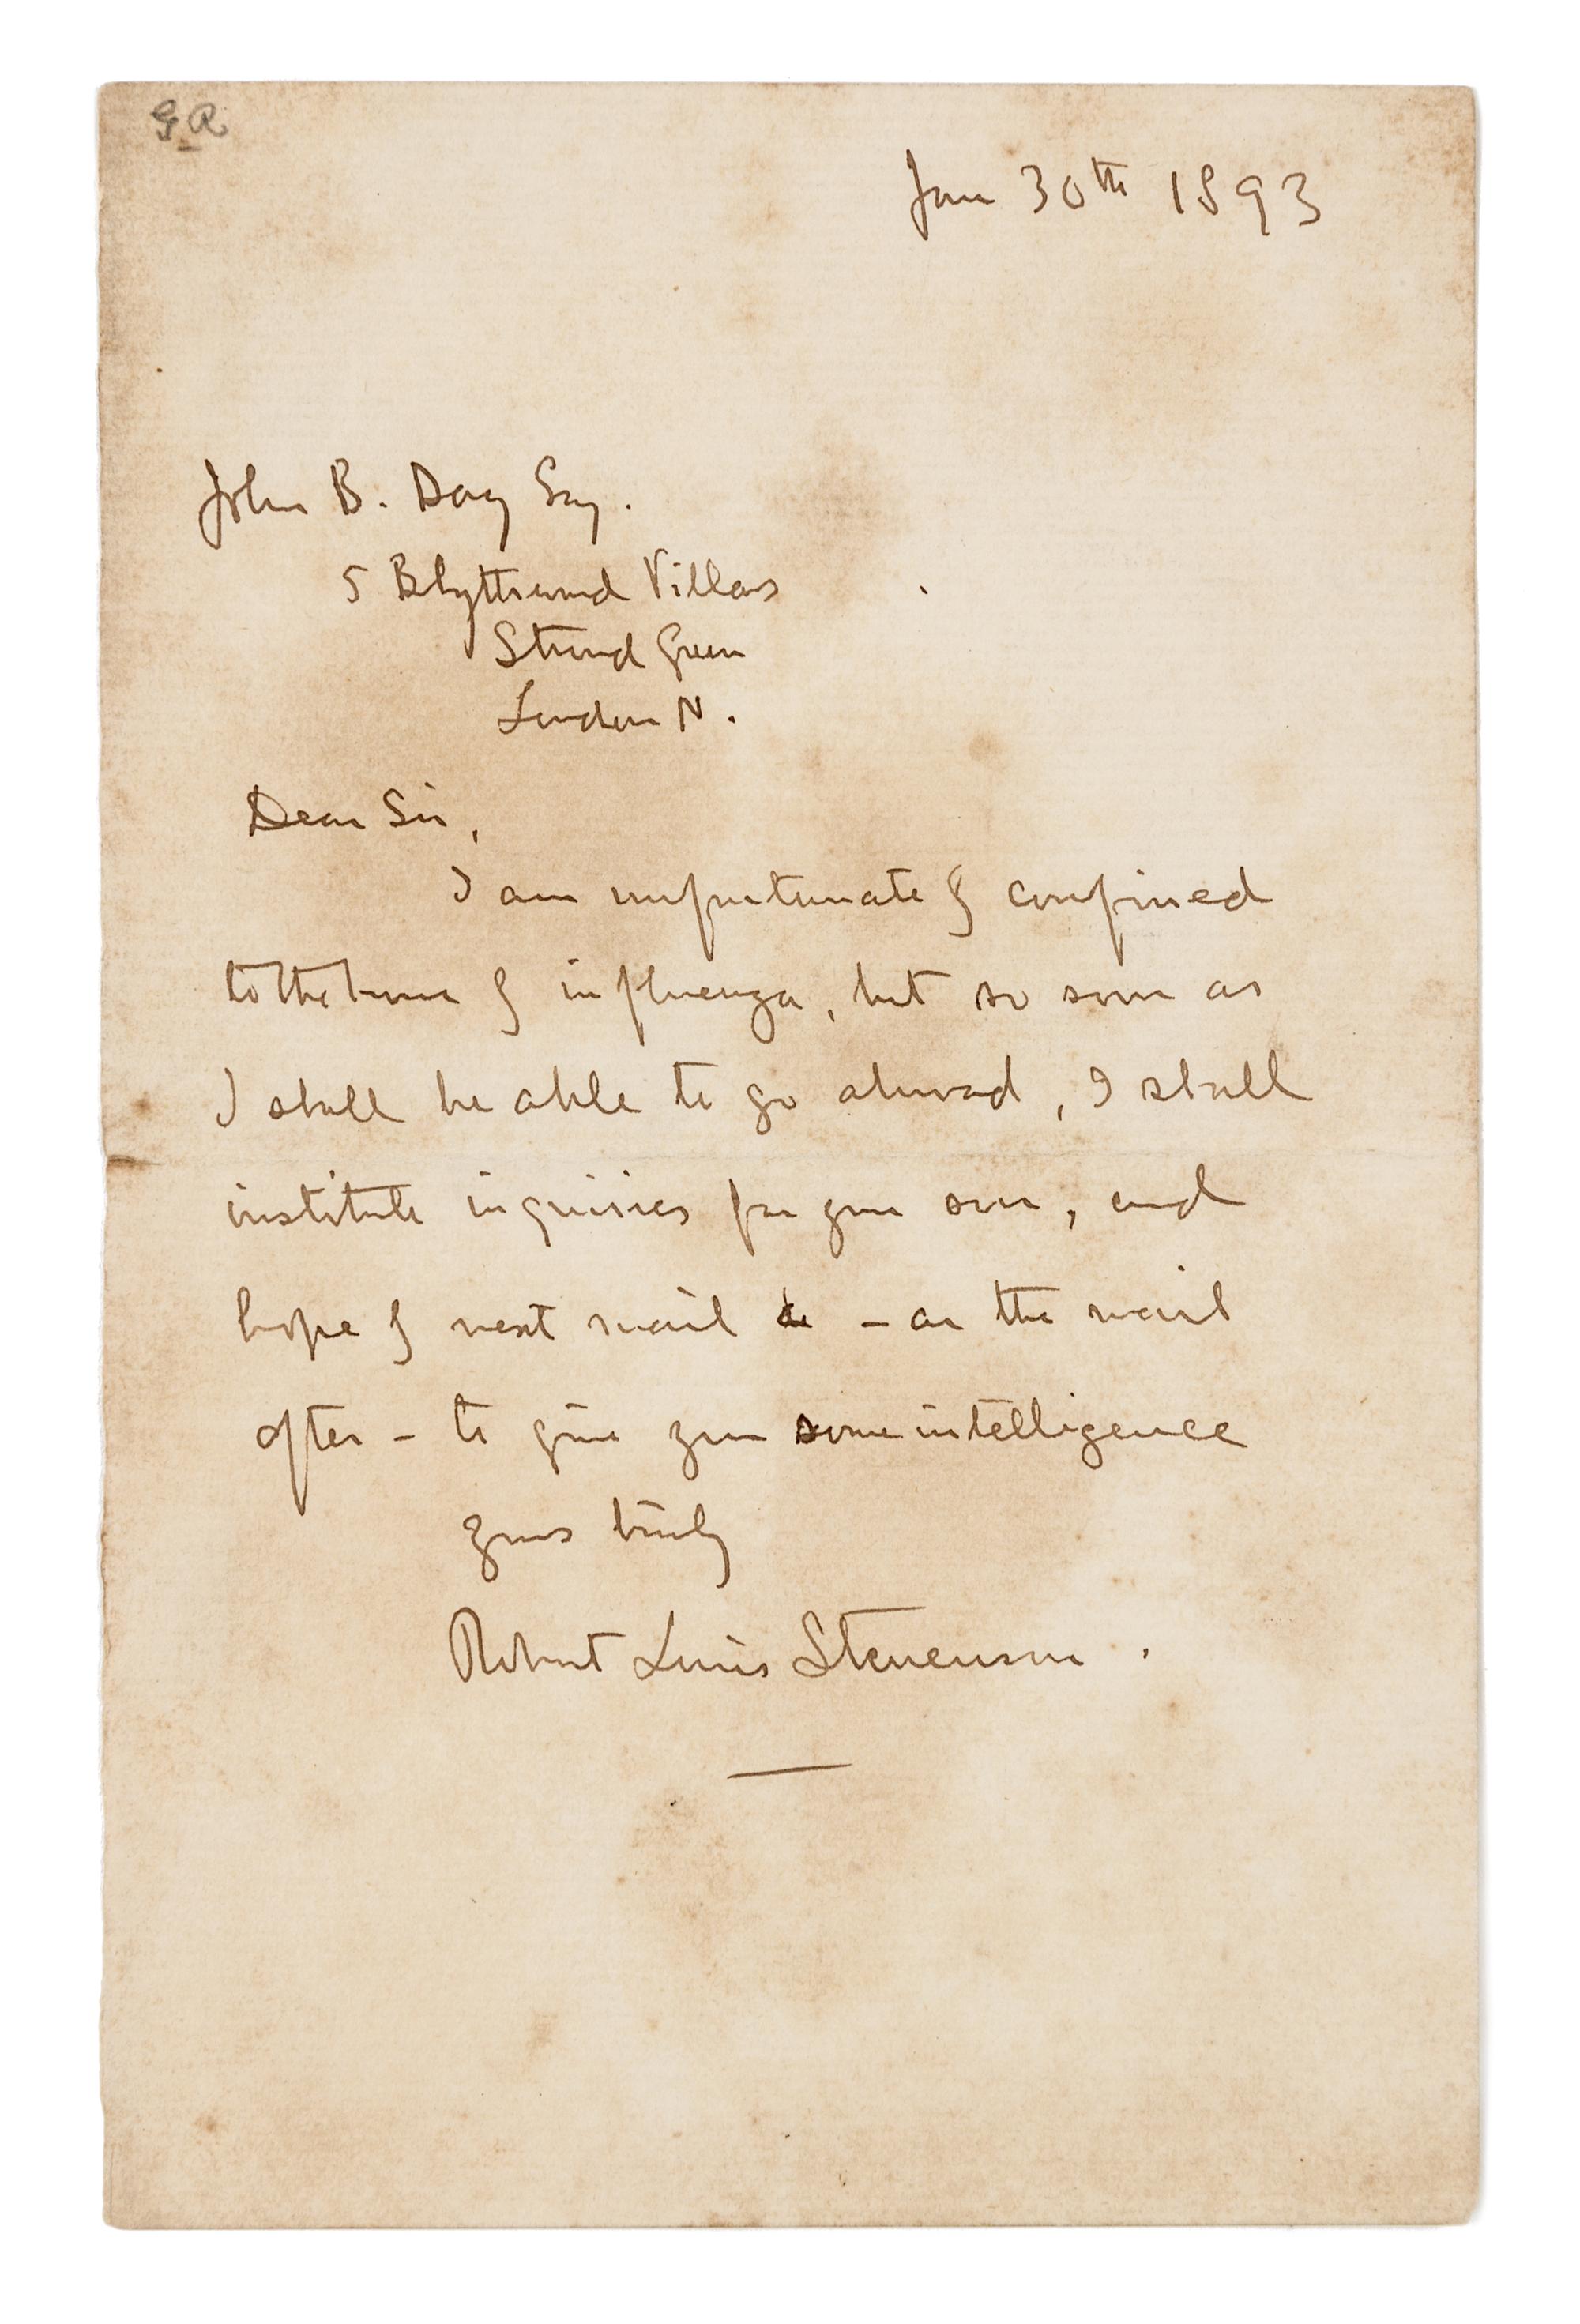 GR
Jan 30th 1893
John B. Day Esq.
5 Blythwood Villas
Stroud Green
London N.
Dear Sir,
I am unfortunately confined
to the house by influenza, but so soon as
I shall be able to go abroad, I shall
institute inquiries for your son, and
hope by next mail – or the mail
after – to give you some intelligence
yours truly
Robert Louis Stevenson.